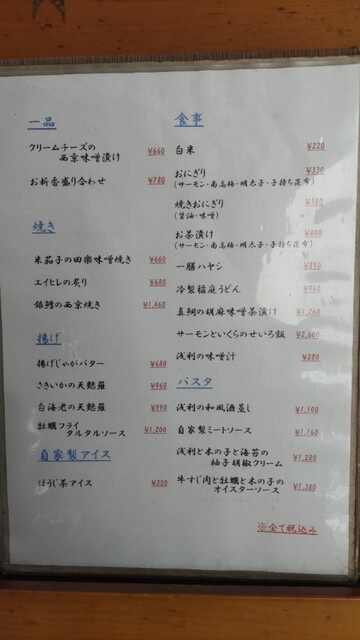 一品
クリームチーズの
西京味噌漬け ¥660
お新香盛り合わせ ¥780
焼き
米茄子の田楽味噌焼き ¥660
エイヒレの炙り ¥680
銀鱈の西京焼き ¥1,460
揚げ
揚げじゃがバター ¥680
さきいかの天麩羅 ¥960
白海老の天麩羅 ¥990
牡蠣フライ
タルタルソース ¥1,200
自家製アイス
ほうじ茶アイス ¥350
食事
白米 ¥220
おにぎり ¥330
(サーモン・南高梅・明太子・子持ち昆布)
焼きおにぎり ¥380
(醤油・味噌)
お茶漬け ¥800
(サーモン・南高梅・明太子・子持ち昆布)
一膳ハヤシ ¥890
冷製稲庭うどん ¥960
真鯛の胡麻味噌茶漬け ¥1,260
サーモンといくらのせいろ飯 ¥2,600
浅利の味噌汁 ¥280
パスタ
浅利の和風酒蒸し ¥1,100
自家製ミートソース ¥1,160
浅利と木の子と海苔の
柚子胡椒クリーム ¥1,280
牛すじ肉と牡蠣と木の子の
オイスターソース ¥1,380
※全て税込み